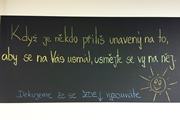 Když je někdo příliš unavený na to,
aby se na Vás usmál, usmějte se vy na něj.
Děkujeme že se ZDE ↓ nezouváte